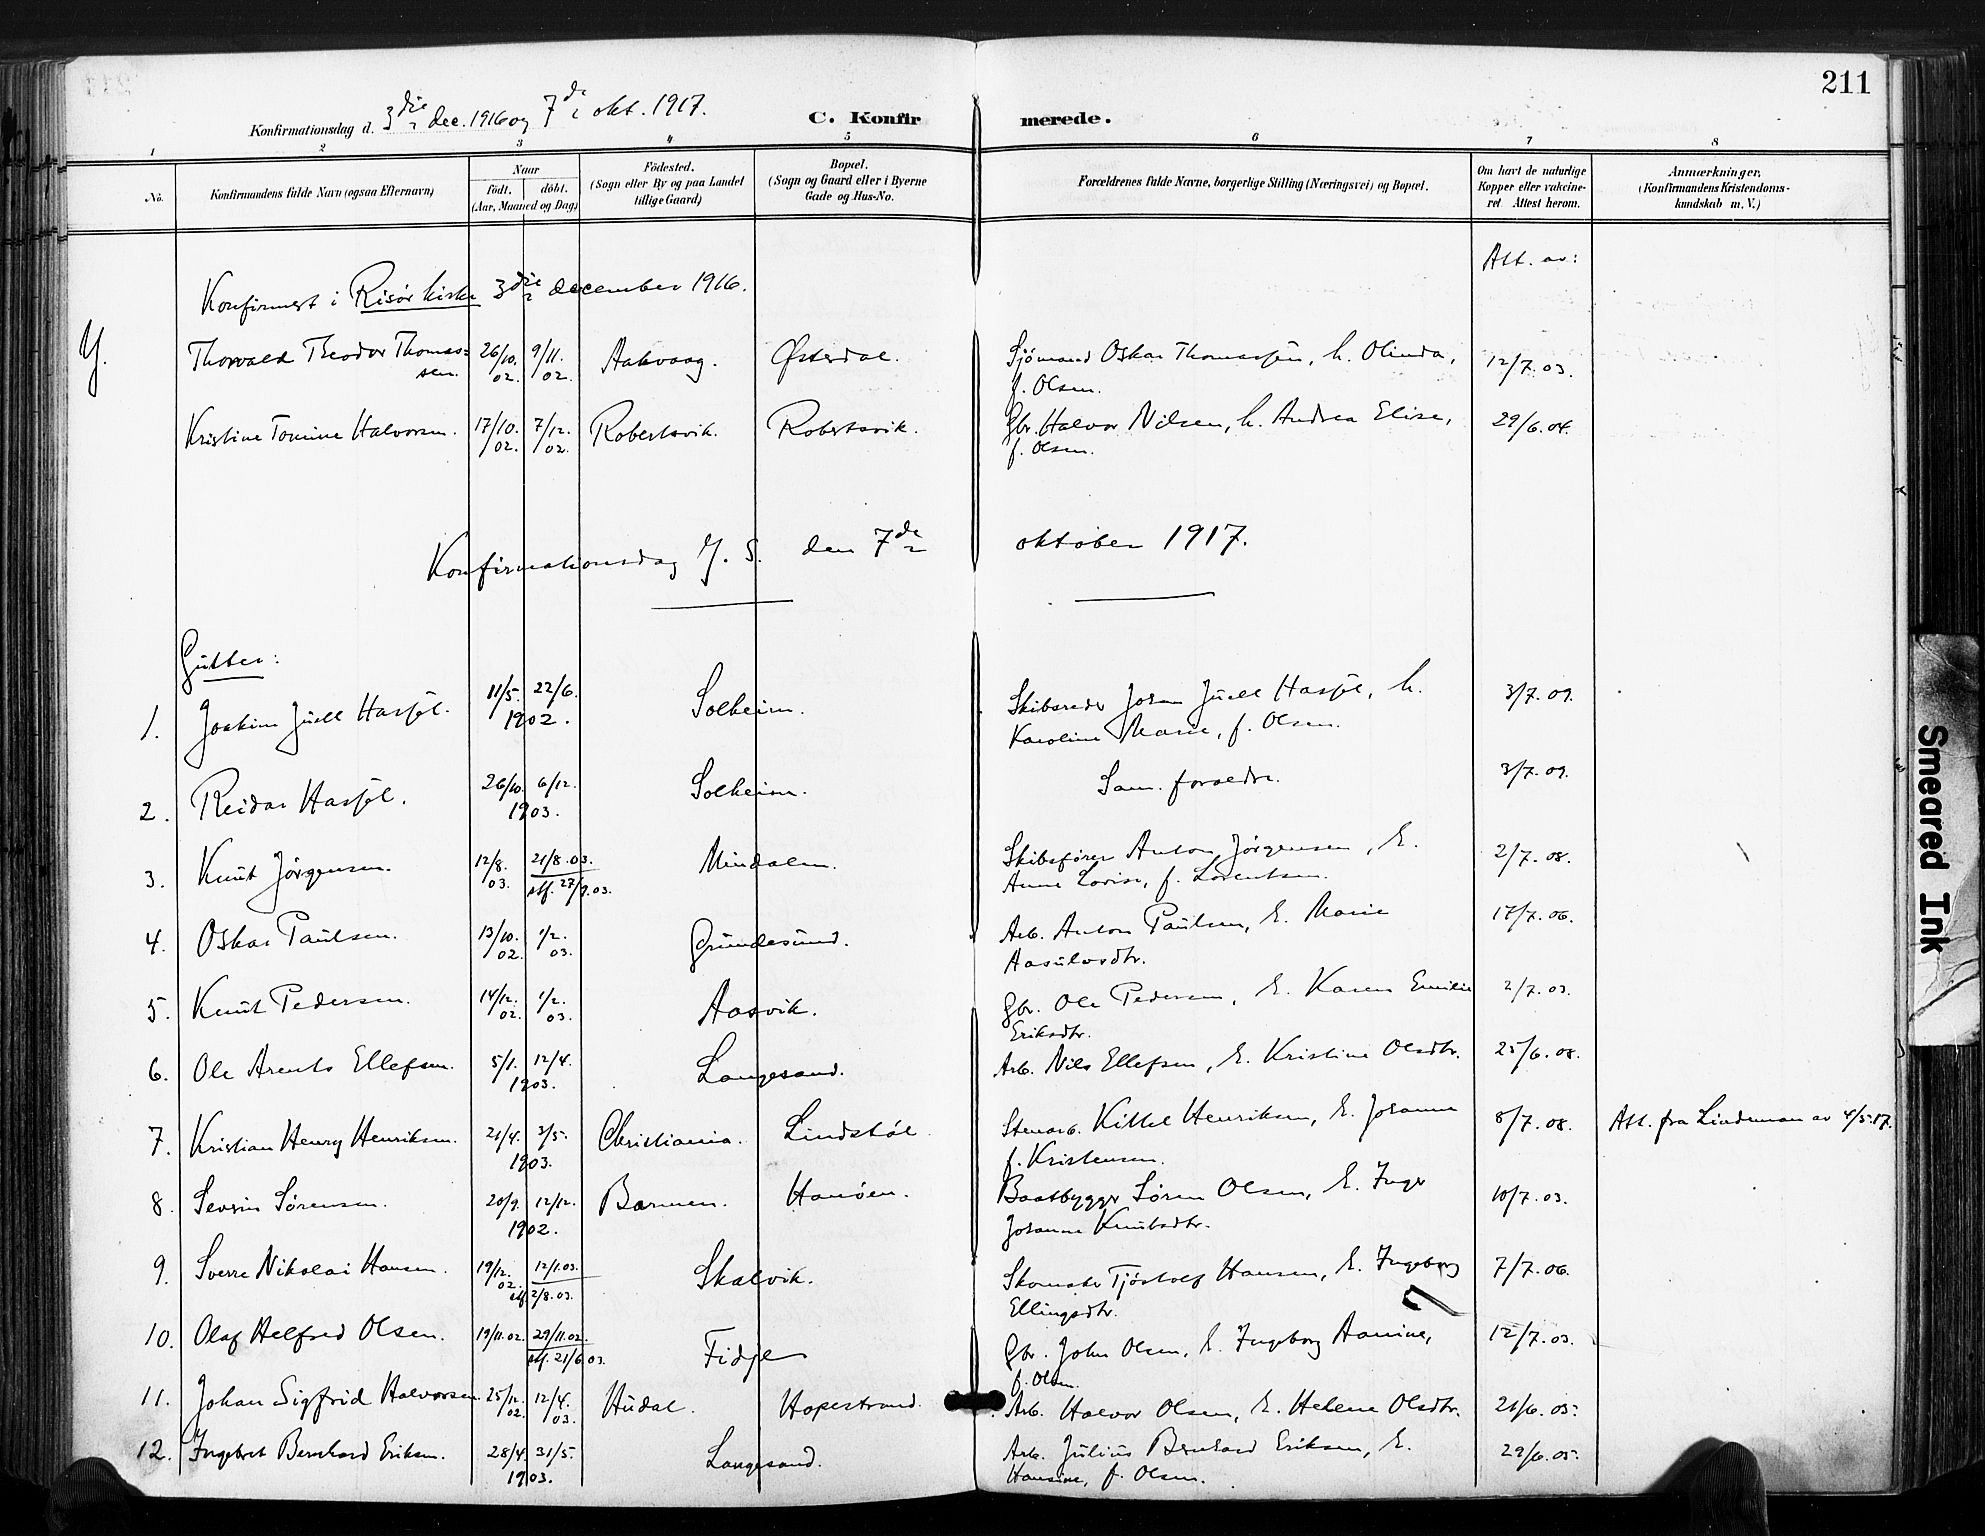 211
Konfirmationsdag d. 3die dec. 1916 og 7de okt. 1917.
C. Konfirmerede.
1 2 3 4 5 6 7 8
No.
Konfirmandens fulde Navn (ogsaa Efternavn)
Naar
født. døbt.
(Aar, Maaned og Dag)
Födested.
(Sogn eller By og paa Landet
tillige Gaard)
Bopæl.
(Sogn og Gaard eller i Byerne
Gade og Hus-No.
Forældrenes fulde Navne, borgerlige Stilling (Næringsvei) og Bopæl.
Om havt de naturlige
Kopper eller vakcine-
ret Attest herom.
Anmærkninger,
(Konfirmandens Kristendoms-
kundskab m. V.)
Att. av:
Konfirmert i Risør kirke 3die december 1916.
Y.
Thorvald Theodor Thomas= 26/10. 9/11. Aakvaag. Østerdal. Sjømand Oskar Thomassen, h. Olinda, 12/7. 03.
sen. 02. 02. f. Olsen.
Kristine Tomine Halvorsen. 17/10. 7/12. Robertsvik. Robertsvik. Gbr. Halvor Nilsen, h. Andrea Elise, 29/6. 04.
02. 02. f. Olsen.
Konfirmationsdag Y. S. den 7de oktober 1917.
Gutter:
1. Joakim Juell Hasføl. 11/5. 22/6. Solheim. Skibsreder Johan Juell Hasføl, h. 3/7. 09.
1902. Karoline Marie, f. Olsen.
2. Reidar Hasføl. 26/10. 6/12. Solheim. Sam. forældre. 3/7. 09.
1903.
3. Knut Jørgensen. 12/8. 21/8. 03. Mindalen. Skibsfører Anton Jørgensen, E. 2/7. 08.
03. stf. 27/9. 03. Anne Lovise, f. Lorentsen.
4. Oskar Paulsen. 13/10. 1/2. Grundesund. Arb. Anton Paulsen, E. Marie 17/7. 06.
02. 03. Aasulvsdtr.
5. Knut Pedersen. 14/12. 1/2. Aasvik. Gbr. Ole Pedersen, E. Karen Emilie 2/7. 03.
02. 03. Eriksdtr.
6. Ole Arents Ellefsen. 5/1. 12/4. Langesand. Arb. Nils Ellefsen, E. Kristine Olsdtr. 25/6. 08.
1903.
7. Kristian Henry Henriksen. 21/4. 3/5. Christiania. Lindstøl. Stenarb. Kittel Henriksen, E. Johanne 8/7. 08. Att. fra Lindeman av 4/5. 17.
1903. f. Kristensen.
8. Severin Sørensen. 20/9. 12/12. Barmen. Hanøen. Baatbygger Søren Olsen, E. Inger 10/7. 03.
1902. Johanne Knutsdtr.
9. Sverre Nikolai Hansen. 19/12. 12/1. 03. Skalvik. Skomaker Tjøstolf Hansen, E. Ingeborg 7/7. 06.
02. stf. 2/8. 03. Ellingsdtr.
10. Olaf Helfred Olsen. 19/11. 02. 29/11. 02. Fidje Gbr. John Olsen, E. Ingeborg Aamine, 12/7. 03.
stf. 21/6. 03. f. Olsen.
11. Johan Sigfrid Halvorsen. 25/12. 12/4. Hudal. Hopestrand. Arb. Halvor Olsen, E. Helene Olsdtr. 21/6. 05.
02. 03.
12. Ingebret Bernhard Eriksen. 28/4. 31/5. Langesand. Arb. Julius Bernhard Eriksen, E. 29/6. 05.
1903. Hansine, f. Olsen.
Smeared Ink